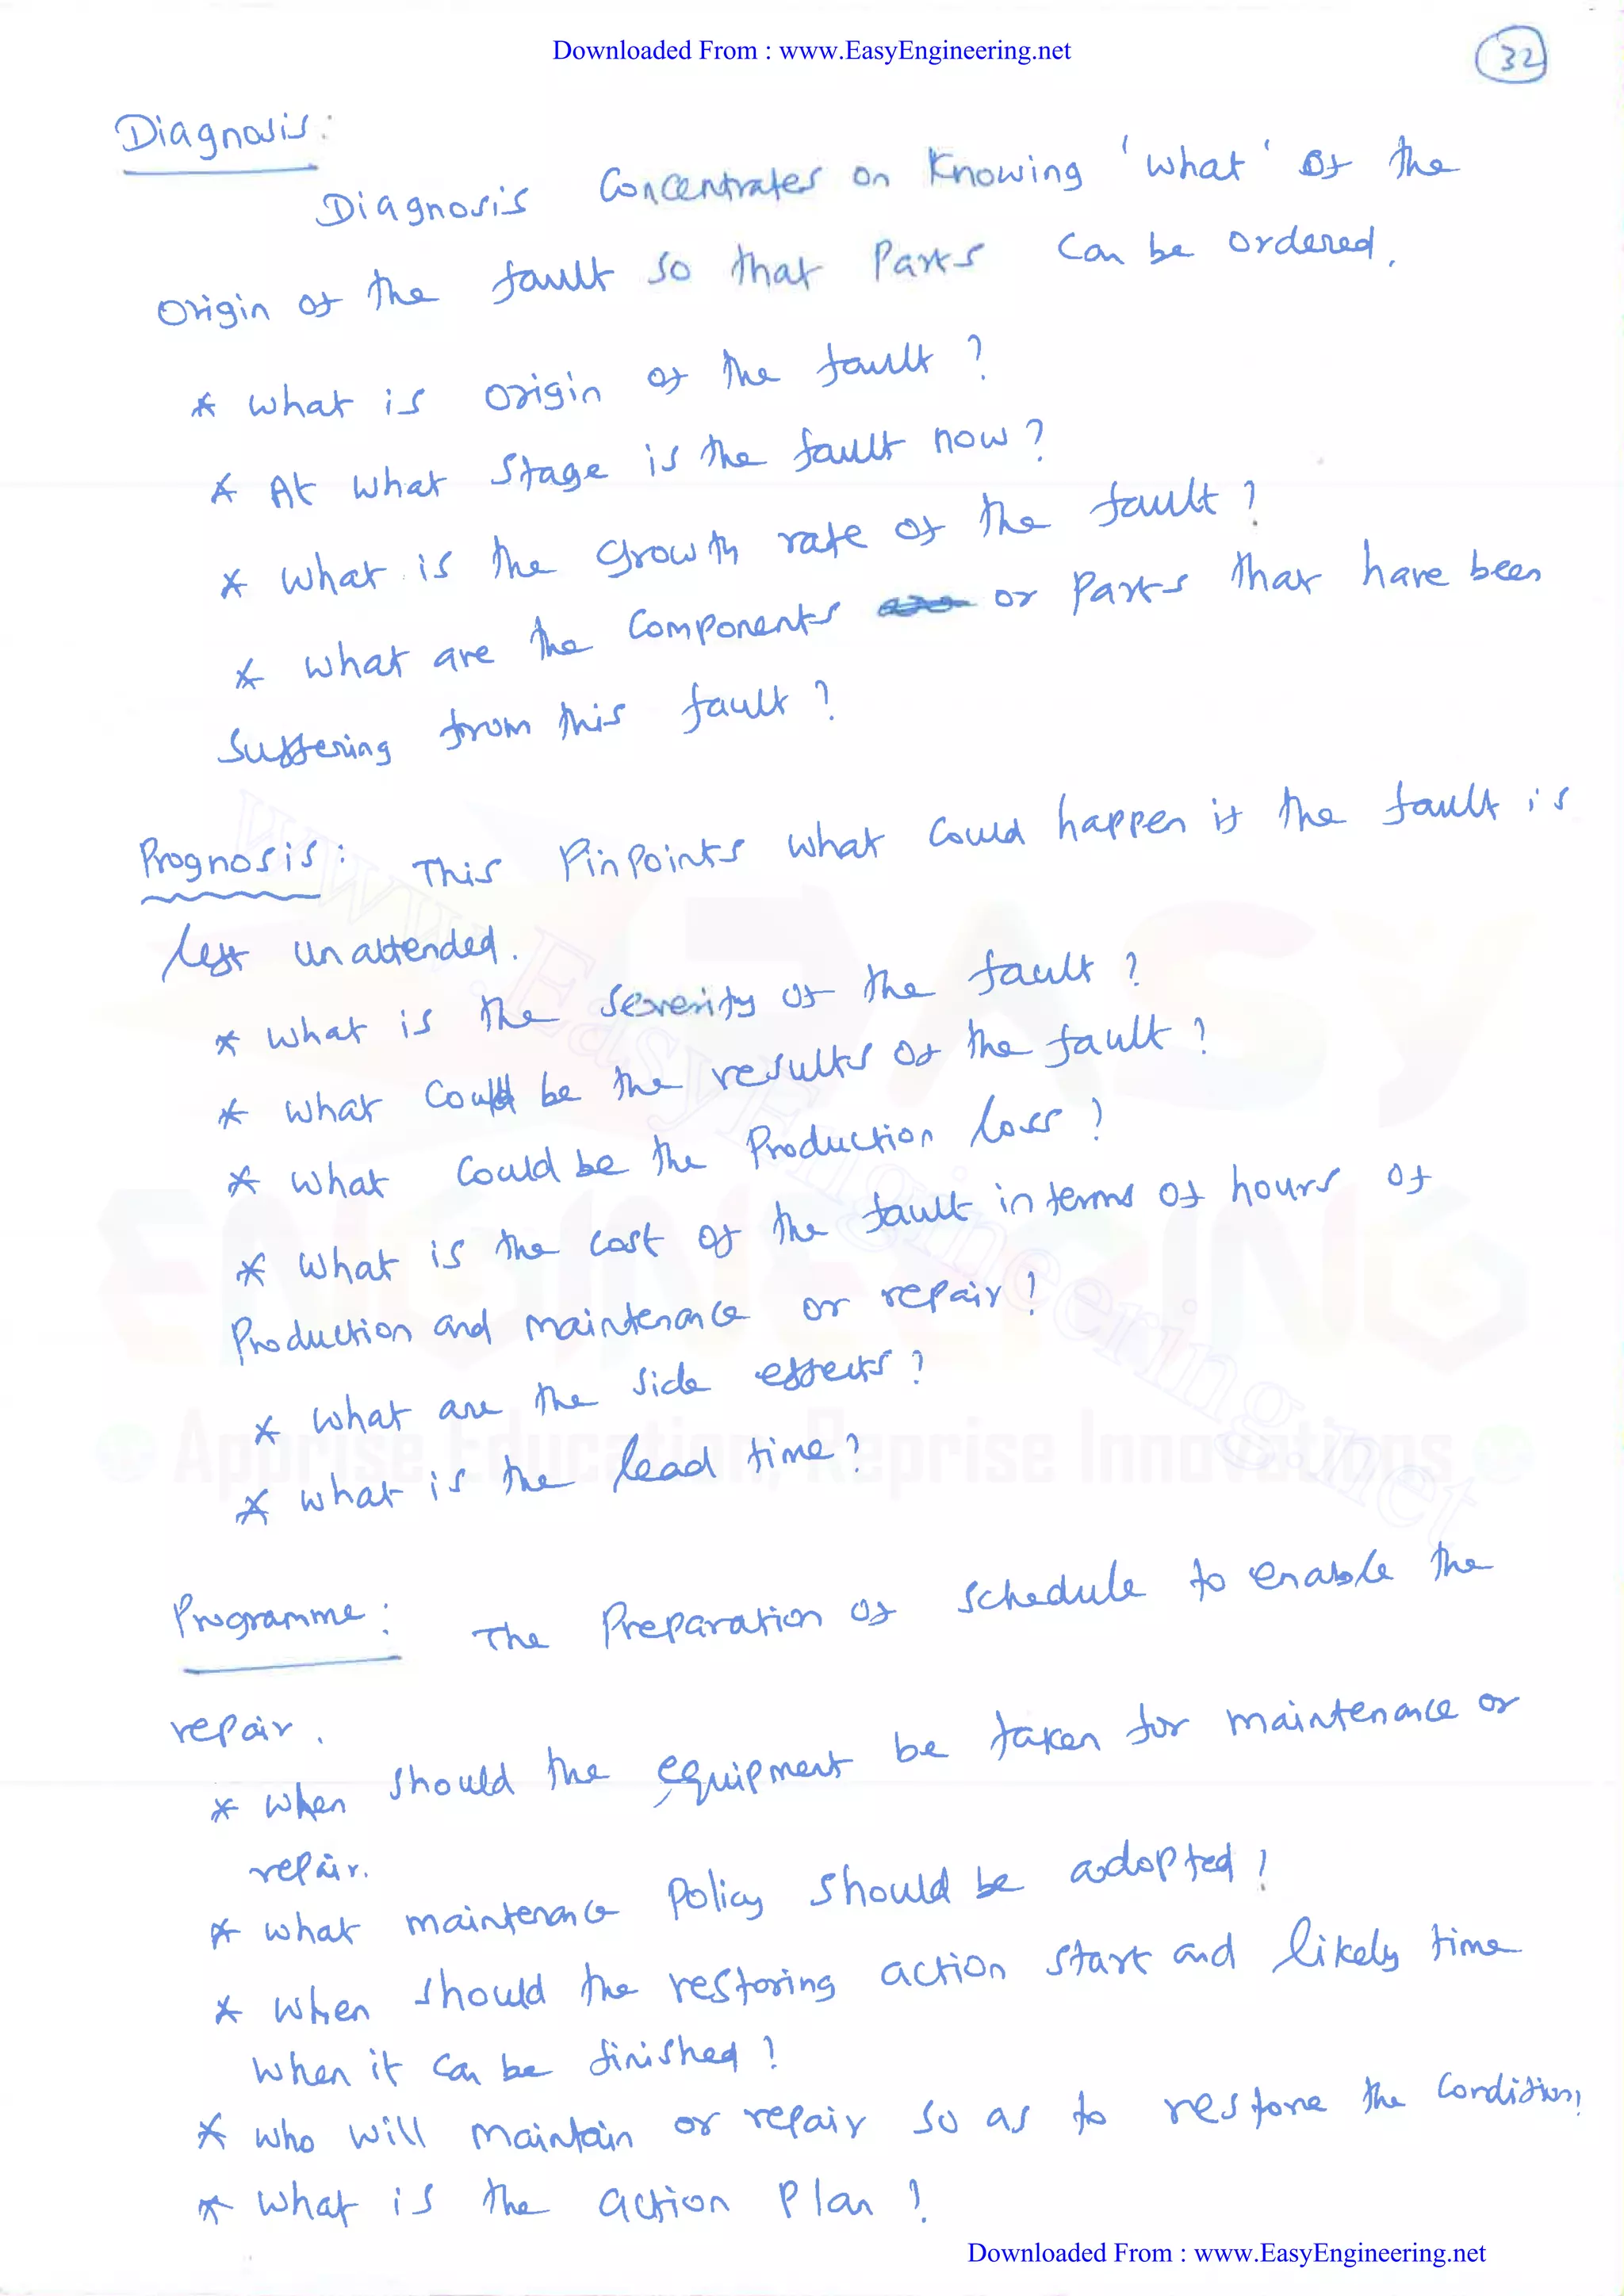 Downloaded From : www.EasyEngineering.net
32
Diagnosis:
Diagnosis Concentrates on Knowing 'what' of the
origin of the fault so that Parts Can be ordered.
* what is origin of the fault ?
* At what Stage is the fault now ?
* what is the Growth rate of the fault ?
* what are the Components or Parts that have been
Suffering from this fault ?
Prognosis : This PinPoints what Could happen if the fault is
left unattended.
* what is the Severity of the fault ?
* what Could be the results of the fault ?
* what Could be the Production loss ?
* what is the Cost of the fault in terms of hours of
Production and maintenance or repair ?
* what are the Side effects ?
* what is the lead time ?
Programme : The Preparation of Schedule to enable the
repair.
* when Should the equipment be taken for maintenance or
repair.
* what maintenance Policy Should be adopted ?
* when should the restoring action Start and likely time
when it Can be finished ?
* who will maintain or repair So as to restore the Condition?
* what is the action Plan ?
www.EasyEngineering.net
EASY
ENGINEERING
Apprise Education, Reprise Innovations
Downloaded From : www.EasyEngineering.net